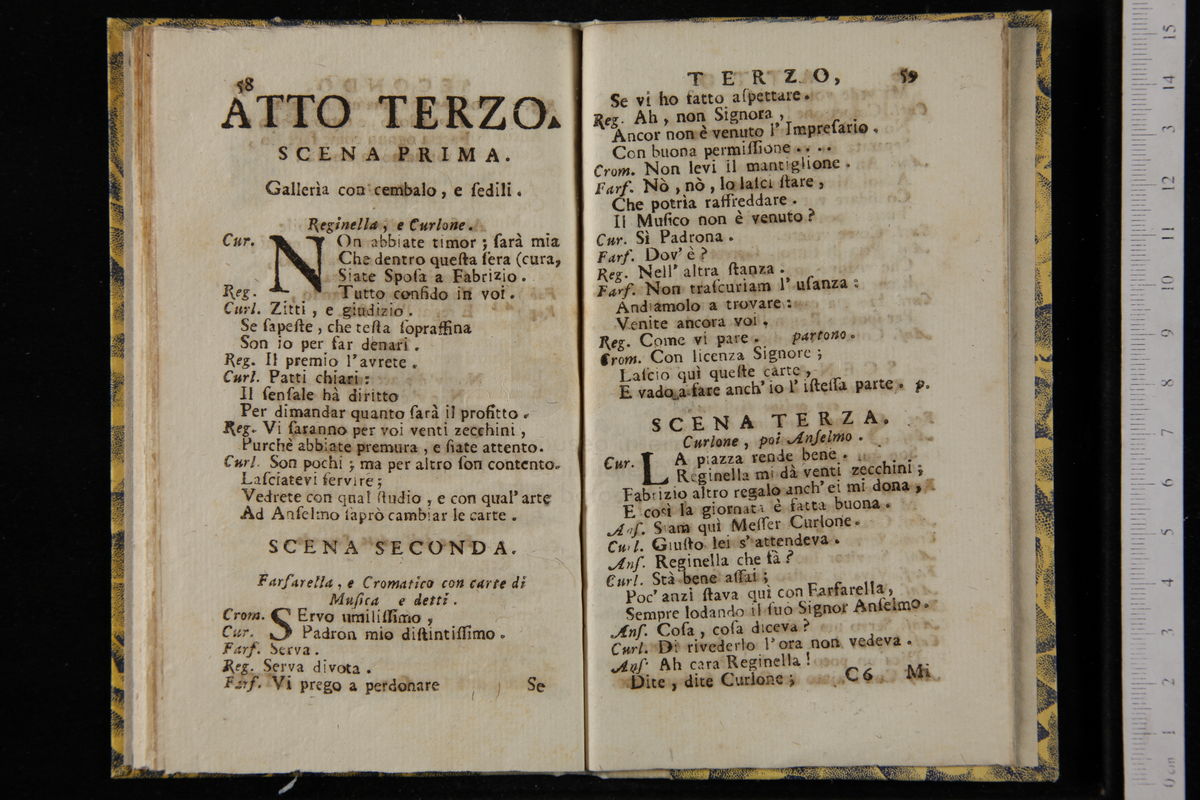 58
ATTO TERZO.
SCENA PRIMA.
Gallerìa con cembalo, e ſedili.
Reginella, e Curlone.
Cur. NOn abbiate timor; ſarà mia
Che dentro queſta ſera (cura,
Siate Spoſa a Fabrizio.
Reg. Tutto confido in voi.
Curl. Zitti, e giudizio.
Se ſapeſte, che teſta ſopraffina
Son io per far denari.
Reg. Il premio l'avrete.
Curl. Patti chiari:
Il ſenſale hà diritto
Per dimandar quanto ſarà il profitto.
Reg. Vi ſaranno per voi venti zecchini,
Purchè abbiate premura, e ſiate attento.
Curl. Son pochi; ma per altro ſon contento.
Laſciatevi ſervire;
Vedrete con qual ſtudio, e con qual' arte
Ad Anſelmo ſaprò cambiar le carte.
SCENA SECONDA.
Farfarella, e Cromatico con carte di
Muſica e detti.
Crom. SErvo umiliſſimo,
Cur. Padron mio diſtintiſſimo.
Farf. Serva.
Reg. Serva divota.
Farf. Vi prego a perdonare
Se
TERZO, 59
Se vi ho fatto aſpettare.
Reg. Ah, non Signora,
Ancor non è venuto l' Impreſario.
Con buona permiſſione....
Crom. Non levi il mantiglione.
Farf. Nò, nò, lo laſci ſtare,
Che potrìa raffreddare.
Il Muſico non è venuto?
Cur. Sì Padrona.
Farf. Dov' è?
Reg. Nell' altra ſtanza.
Farf. Non traſcuriam l' uſanza:
Andiamolo a trovare:
Venite ancora voi.
Reg. Come vi pare. partono.
Crom. Con licenza Signore;
Laſcio quì queſte carte,
E vado a fare anch' io l' iſteſſa parte. p.
SCENA TERZA.
Curlone, poi Anſelmo.
Cur. LA piazza rende bene.
Reginella mi dà venti zecchini;
Fabrizio altro regalo anch' ei mi dona,
E così la giornata è fatta buona.
Anſ. Siam quì Meſſer Curlone.
Curl. Giuſto lei s' attendeva.
Anſ. Reginella che fà?
Curl. Stà bene aſſai;
Poc' anzi ſtava quì con Farfarella,
Sempre lodando il ſuo Signor Anſelmo.
Anſ. Coſa, coſa diceva?
Curl. Di rivederlo l' ora non vedeva.
Anſ. Ah cara Reginella!
Dite, dite Curlone;
C6 Mi